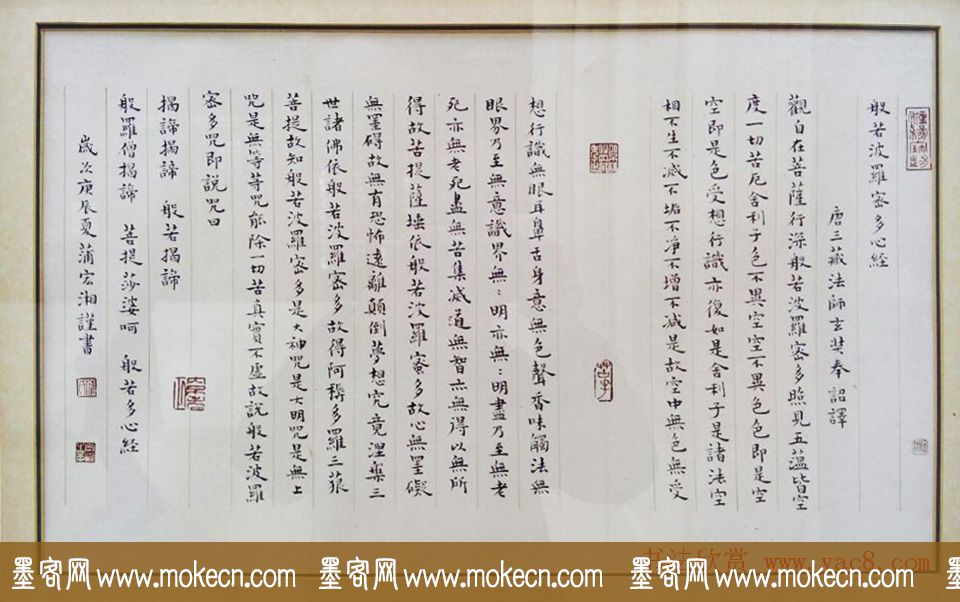 般若波羅密多心経
唐三藏法師玄奘奉詔譯
觀自在菩薩行深般若波羅密多照見五蕴皆空
度一切苦厄舍利子色不異空空不異色色即是空
空即是色受想行識亦復如是舍利子是諸法空
相不生不滅不垢不淨不增不减是故空中無色無受
想行識無眼耳鼻舌身意無色聲香味觸法無
眼界乃至無意識界無：明亦無：明盡乃至無老
死亦無老死盡無苦集滅道無智亦無得以無所
得故菩提薩埵依般若波羅密多故心無罣礙
無罣碍故無有恐怖遠離顛倒夢想究竟涅槃三
世諸佛依般若波羅密多故得阿耨多羅三藐
菩提故知般若波羅密多是大神咒是大明咒是無上
咒是無等等咒能除一切苦真實不虛故說般若波羅
密多咒即説咒曰
揭諦揭諦 般若揭諦
般羅僧揭諦 菩提莎婆呵 般若多心経
歲次庚辰夏蒲宏湘謹書
书法欣赏 www.yac8.com
墨客网 www.mokecn.com 墨客网 www.mokecn.com 墨客网 www.mokecn.com